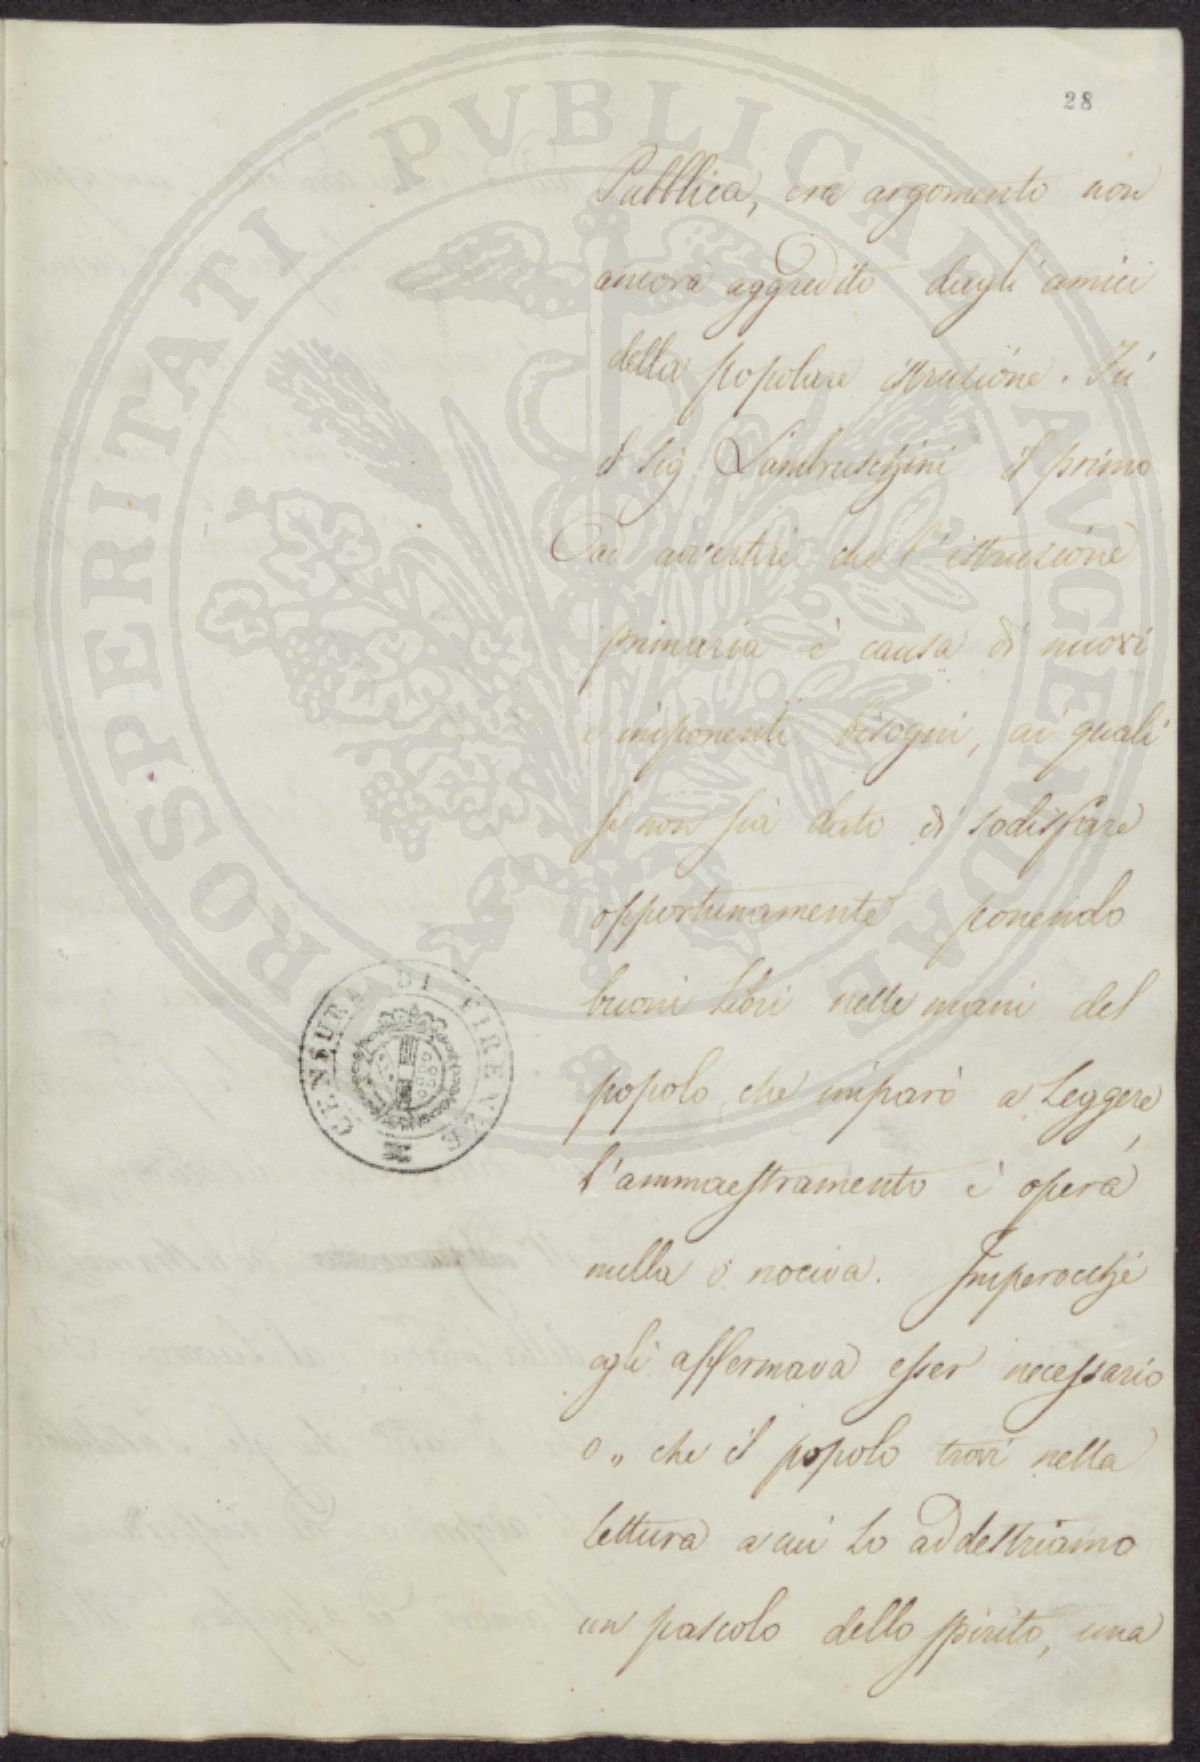 28
Pubblica, era argomento non
ancora aggredito dagli amici
della popolare istruzione. Fù
il Sig. Lambruschini il primo
ad avvertire che l'istruzione
primaria è causa di nuovi
e imponenti bisogni, ai quali
se non sia dato di sodisfare
opportunamente ponendo
buoni Libri nelle mani del
popolo che imparò a Leggere,
l'ammaestramento è opera
nulla o nociva. Imperocchè
egli affermava esser necessario
o „ che il popolo trovi nella
lettura a cui lo addestriamo
un pascolo dello spirito, una
CENSURA DI FIRENZE
PROSPERITATI PVBLICAE AVGENDAE